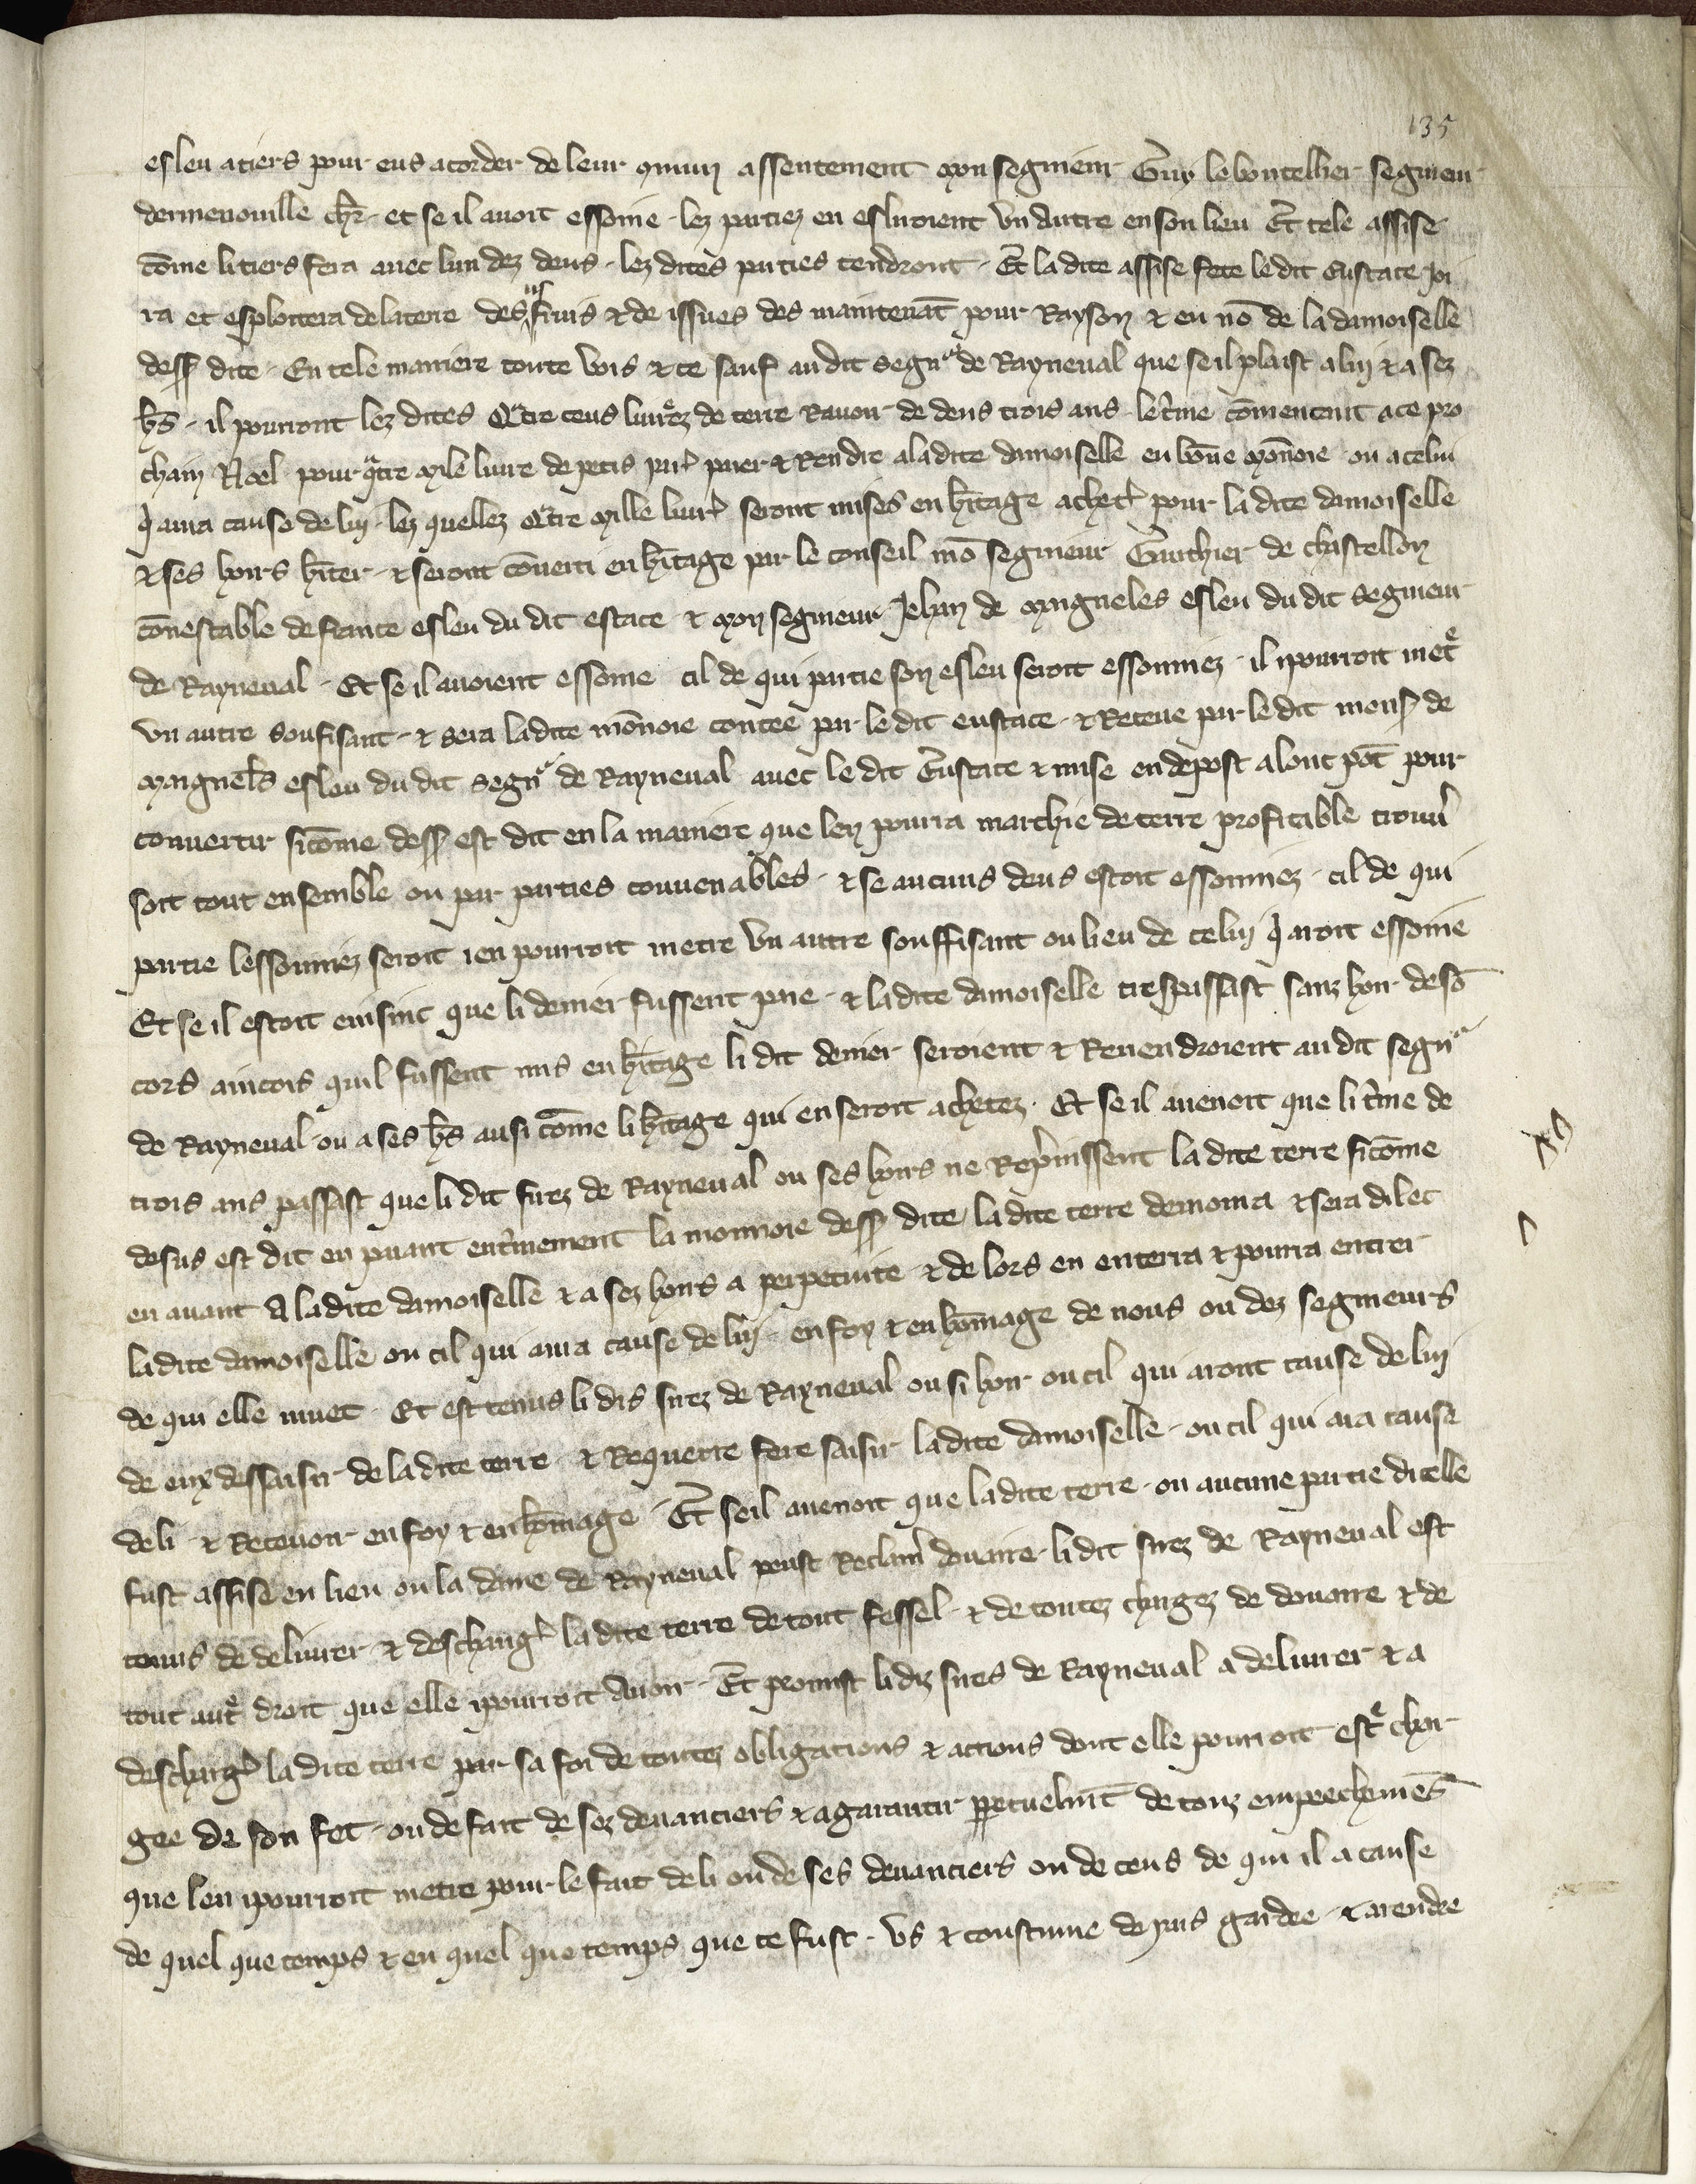 135
esleu atiers pour eus acorder de leur ꝯmun assentement mon segnieur Guy le boutellier segnieur
dermenouille chlr. et se il auoit essoine. lez partiez en esluroient vn autre en son lieu Et tele assise
cōme li tiers fera auec lun dez deus. lez dites parties tendront. Et la dite assise fete le dit Eustace joi
ra et esploitera de la terre des fruis ⁊ de issues des maintenāt pour Rayson ⁊ en nō de la damoiselle
dess dite. En tele maniere toute vois ⁊ ce sauf au dit segnr de Rayneual que se il plaist a luy ⁊ a sez
hrs. il pourront lez dites Qatre cens liurez de terre Rauoir de dens trois ans. le tme cōmencant a ce pro
chain Noel pour qatre mile liure de petis par paier ⁊ Rendre a la dite damoiselle en bōne mōnoie ou a celui
q aura cause de luy. lez quellez Qatre mille liur seront mises en hitage achet pour la dite damoiselle
⁊ ses hoirs hiter. ⁊ seront cōuerti en hitage par le conseil mō segnieur Gauchier de chastellon
cōnestable de france esleu du dit estace ⁊ mon segnieur Jehan de maigneles esleu du dit segnieur
de Rayneual. Et se il auoient essoine cil de qui partie son esleu seroit essonniez. il ipourroit metre
vn autre soufisant. ⁊ sera la dite mōnoie contee par le dit eustace. ⁊ Receue par le dit mons de
maignels esleu du dit segnr de Rayneual auec le dit Eustace ⁊ mise en depost a lonc pōt pour
conuertir sicōme dess est dit en la maniere que len pourra marchie de terre profitable trouu
soit tout ensemble ou par parties conuenables. ⁊ se aucuns deus estoit essonniez. cil de qui
partie lessonniez seroit ien pourroit metre vn autre souffisant ou lieu de celuy q aroit essoine
Et se il estoit ensinc que li denier fussent paie. ⁊ la dite damoiselle trespassast sanz hoir de sō
cors aincois quil fussent mis en hitage li dit denier seroient ⁊ Reuendroient au dit segnr
de Rayneual ou a ses hrs ausi cōme li hitage qui en seroit achetez. Et se il auenoit que li tme de
trois ans passast que li dit sirez de Rayneual ou ses hoirs ne Reprinssent la dite terre sicōme
desus est dit en paiant entinement la monnoie dess dite, la dite terre demorra ⁊ sera dilec
en auant A la dite damoiselle ⁊ a sez hoirs a perpetuite. ⁊ de lors en enterra ⁊ pourra entrer
la dite damoiselle ou cil qui aura cause de luy. en foy ⁊ en hōmage de nous ou dez segnieurs
de qui elle muet. Et est tenus li dis sirez de Rayneual ou si hoir ou cil qui aront cause de luy
de eux dessaisir de la dite terre. ⁊ Requerre fere saisir la dite damoiselle. ou cil qui ara cause
de li. ⁊ Receuoir en foy ⁊ en hōmage. Et se il auenoit que la dite terre. ou aucune partie dicelle
fust assise en lieu ou la dame de Rayneual peust Reclam douaire. li dit sirez de Rayneual est
tenus de deliurer. ⁊ descharg la dite terre de tout fessel. ⁊ de toutez chargez de douaire ⁊ de
tout autre droit que elle ipourroit Auoir. Et promist li diz sires de Rayneual a deliurer ⁊ a
descharg la dite terre par sa foi de toutez obligations ⁊ actions dont elle pourroit estre char
gee de son fet. ou de fait de sez deuanciers ⁊ a garantir ppetuelmīt de touz empeechemēs
que len ipourroit metre pour le fait de li ou de ses deuanciers ou de ceus de qui il a cause
de quel que temps ⁊ en quel que temps que ce fust. vs ⁊ coustume de pais gardee. ⁊ a rendre